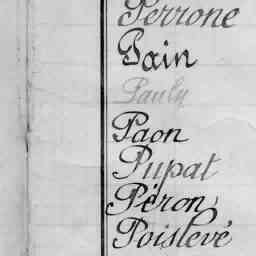 Perrone
Pain
Pauly
Paon
Pupat
Péron
Poislevé